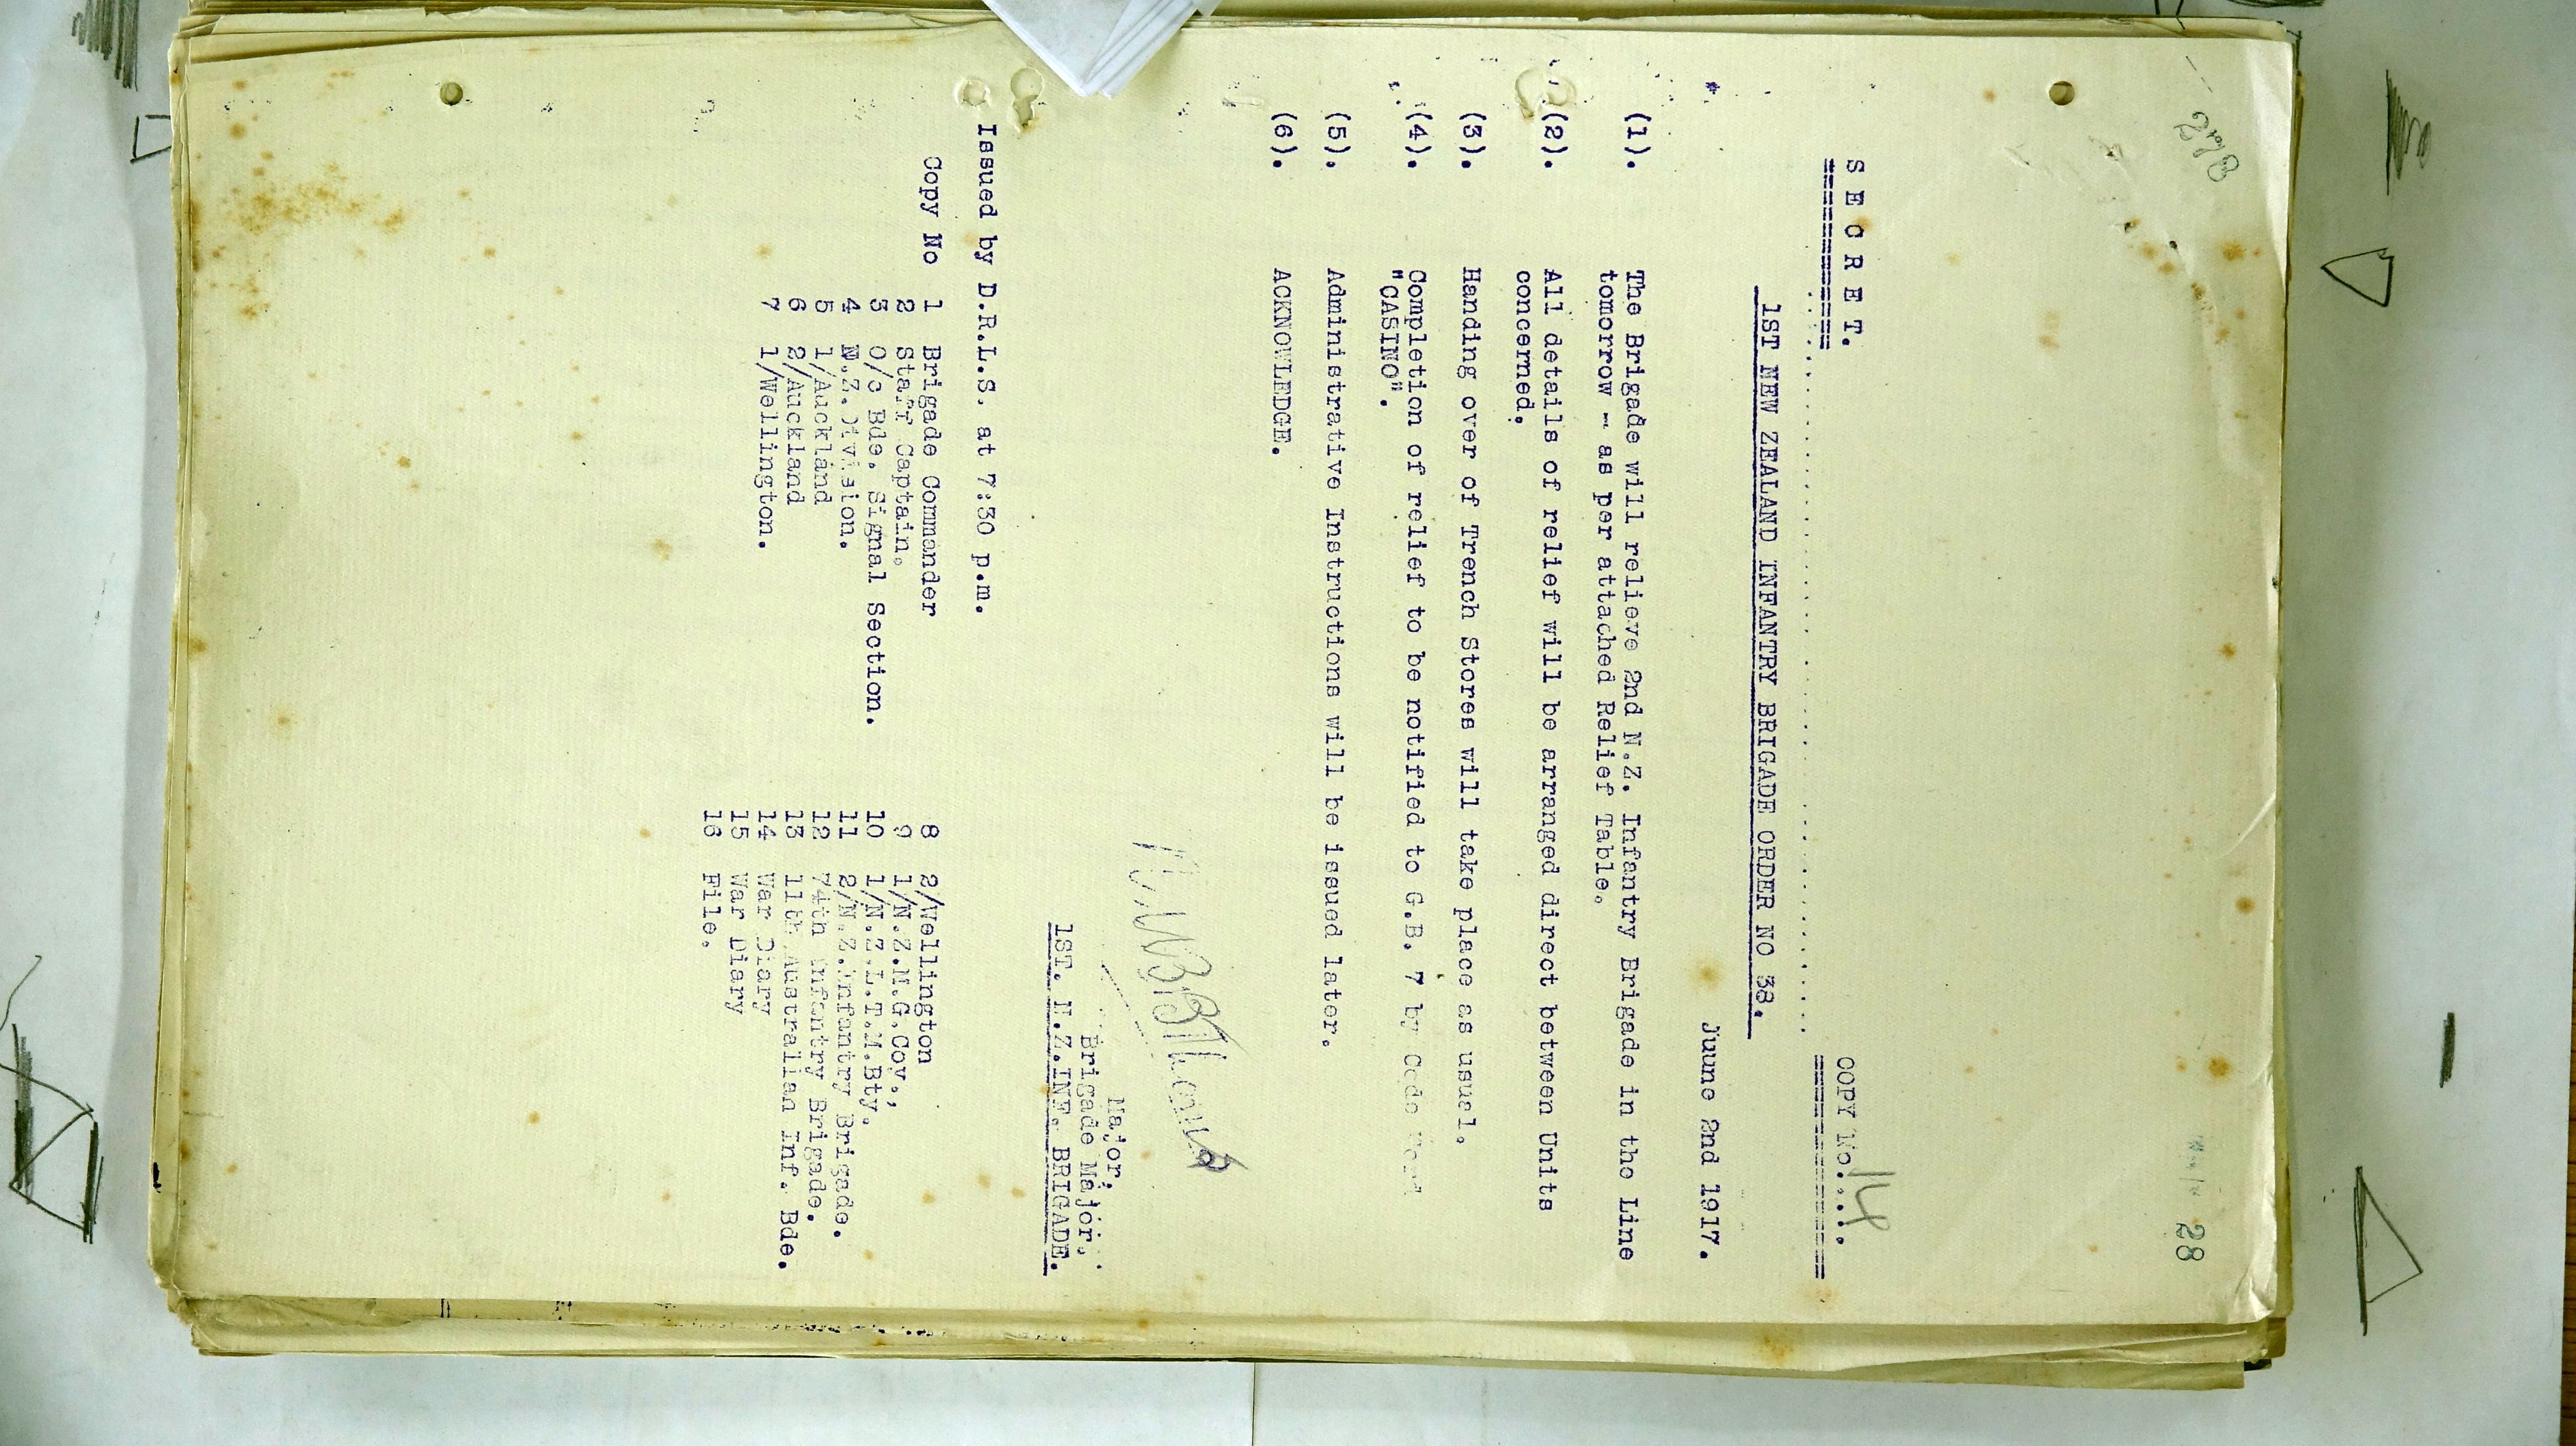 28
S E C R E T.
COPY No..... 14
1ST NEW ZEALAND INFANTRY BRIGADE ORDER NO 38.
Juune 2nd 1917.
(1). The Brigade will relieve 2nd N.Z. Infantry Brigade in the Line
tomorrow - as per attached Relief Table.
(2). All details of relief will be arranged direct between Units
concerned.
(3). Handing over of Trench Stores will take place as usual.
(4). Completion of relief to be notified to G.B. 7 by Code Word
"CASINO".
(5). Administrative Instructions will be issued later.
(6). ACKNOWLEDGE.
Major,
Brigade Major,
1ST. N.Z.INF. BRIGADE.
Issued by D.R.L.S. at 7:30 p.m.
Copy No 1 Brigade Commander
2 Staff Captain.
3 O/c Bde. Signal Section.
4 N.Z. Division.
5 1/Auckland
6 2/Auckland
7 1/Wellington.
8 2/Wellington
9 1/N.Z.M.G.Coy.,
10 1/N.Z.L.T.M.Bty.
11 2/N.Z.Infantry Brigade.
12 74th Infantry Brigade.
13 11th Australian Inf. Bde.
14 War Diary
15 War Diary
16 File.